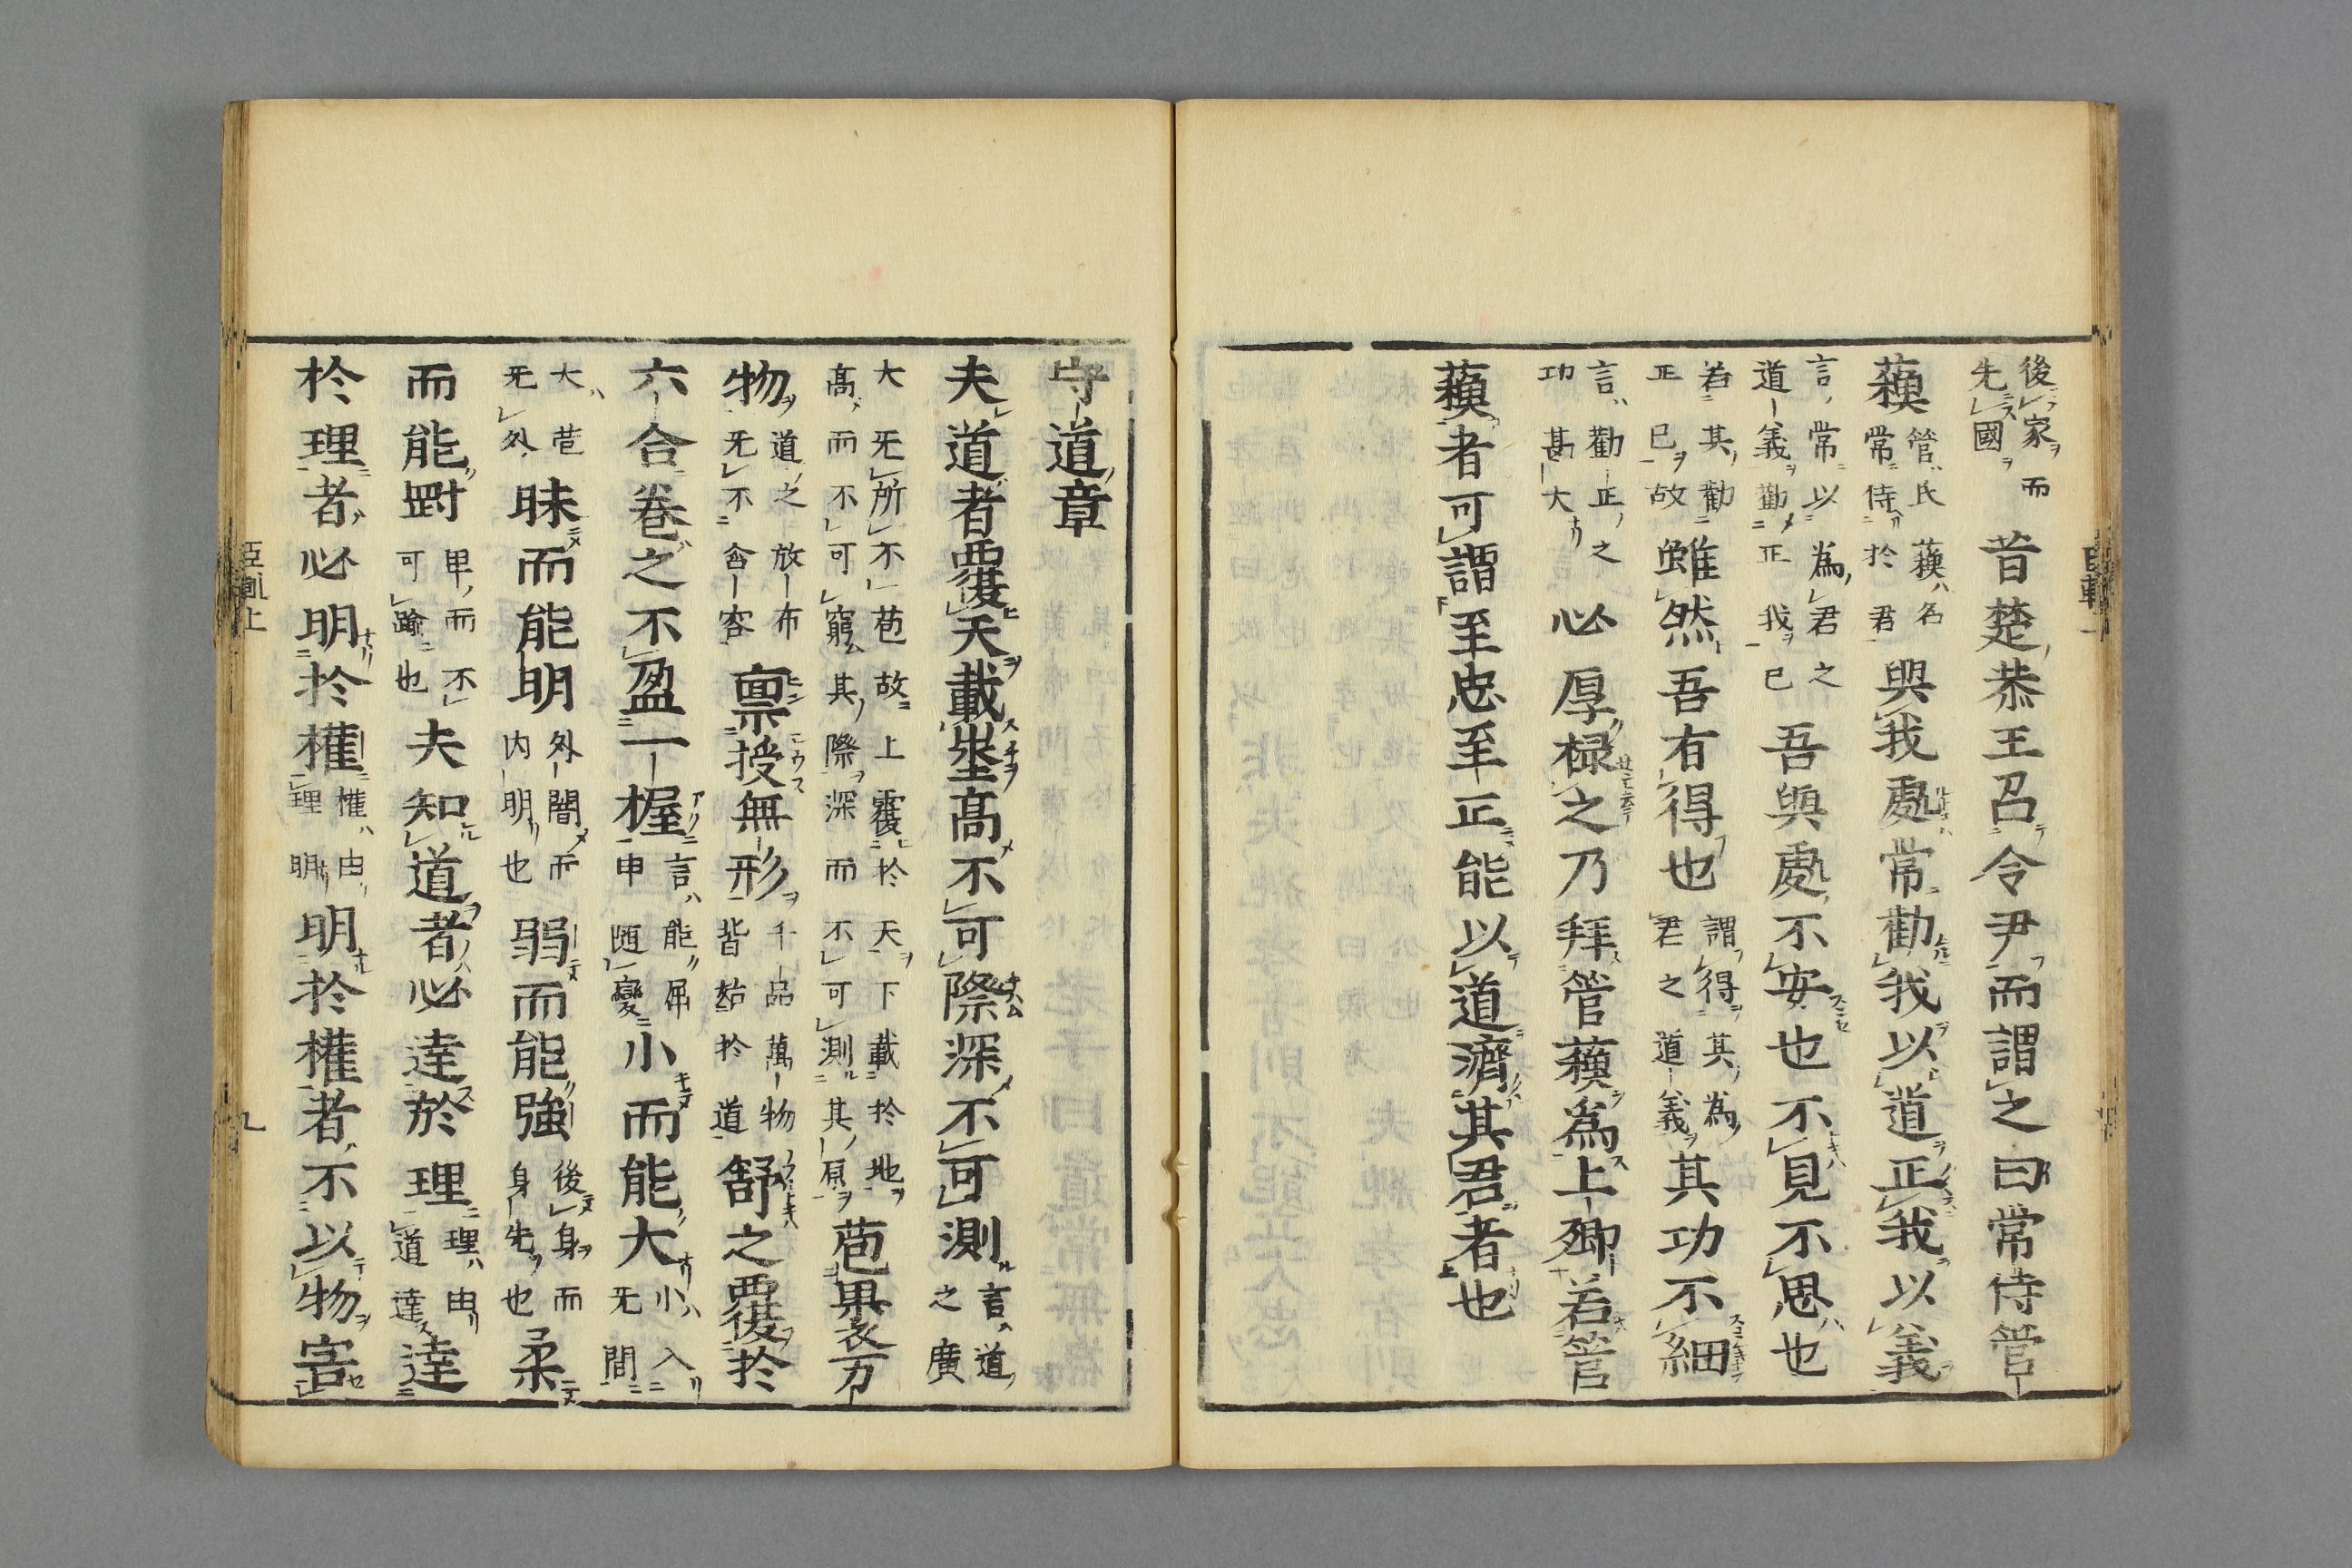 後家而
先國
昔楚恭王召令尹而謂之曰常侍管
蘓
管氏蘓名
常侍於君
與我處常勸我以道正我以義
言常以爲君之
道義勸正我己
吾與處不安也不見不思也
若其勸
正已故
雖然吾有得也
謂得其為
君之道義
其功不細
言勸正之
功甚大
必厚禄之乃拜管蘓爲上卿若管
蘓者可謂至忠至正能以道濟其君者也
守道章
夫道者覆天載埊高不可際深不可測
言道
之廣
大无所不苞故上覆於天下載於地
高而不可窮其際深而不可測其原
苞裹万
物
道之放布
无不含容
稟授無形
千品萬物
皆始於道
舒之覆於
六合卷之不盈一握
言能屈
申随變
小而能大
小入
无間
大苞
无外
昧而能明
外闇而
内明也
弱而能強
後身而
身先也
柔
而能剛
卑而不
可踰也
夫知道者必達於理
理由
道達
達
於理者必明於權
權由
理明
明於權者不以物害
臣軌上
九